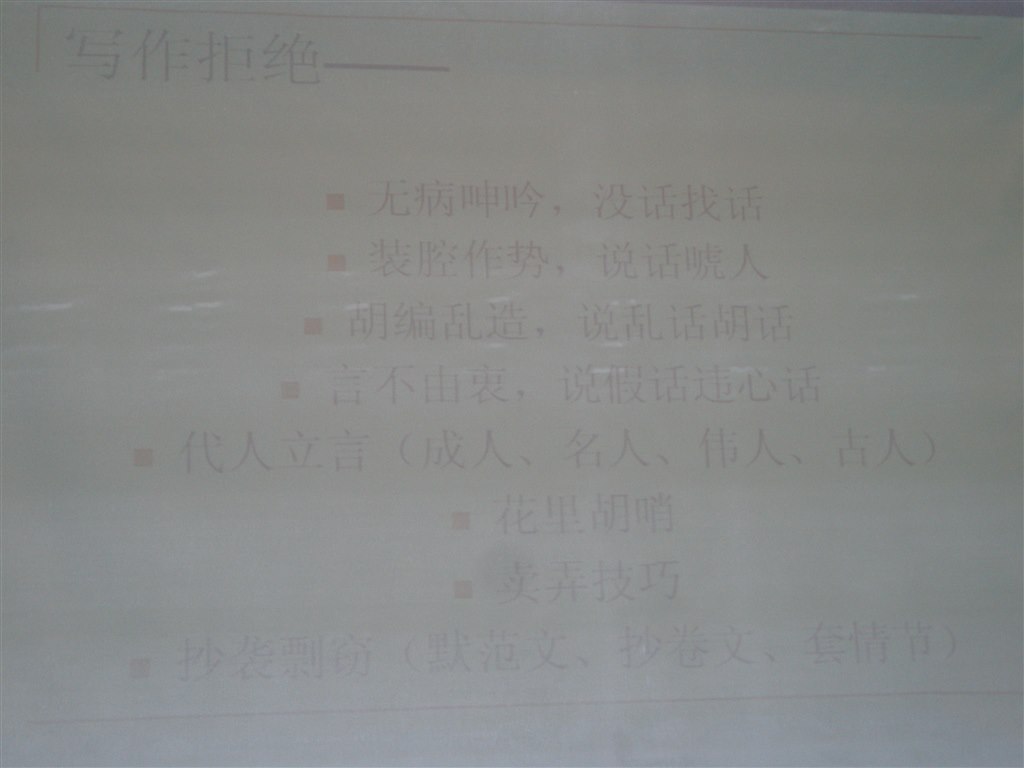 写作拒绝——
■ 无病呻吟，没话找话
■ 装腔作势，说话唬人
■ 胡编乱造，说乱话胡话
■ 言不由衷，说假话违心话
■ 代人立言（成人、名人、伟人、古人）
■ 花里胡哨
■ 卖弄技巧
■ 抄袭剽窃（默范文、抄卷文、套情节）